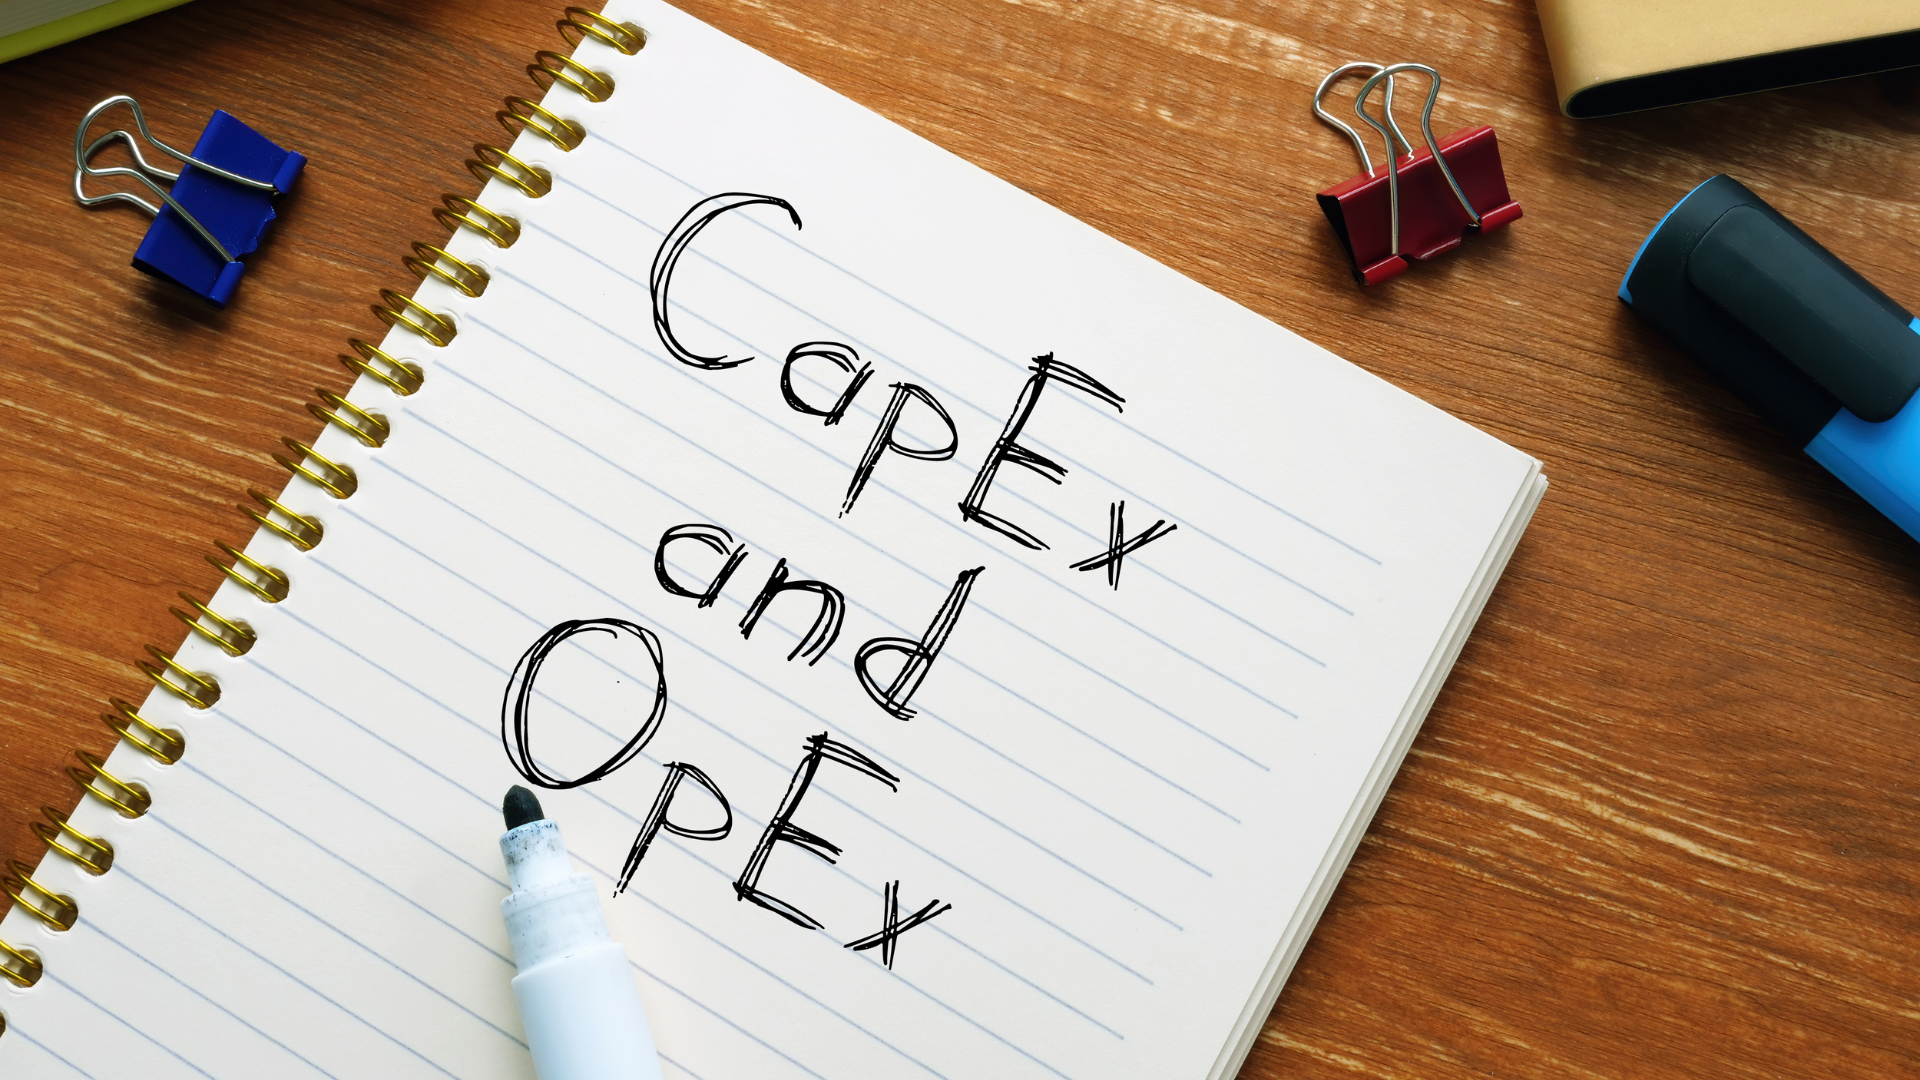 CapEx
and
OpEx